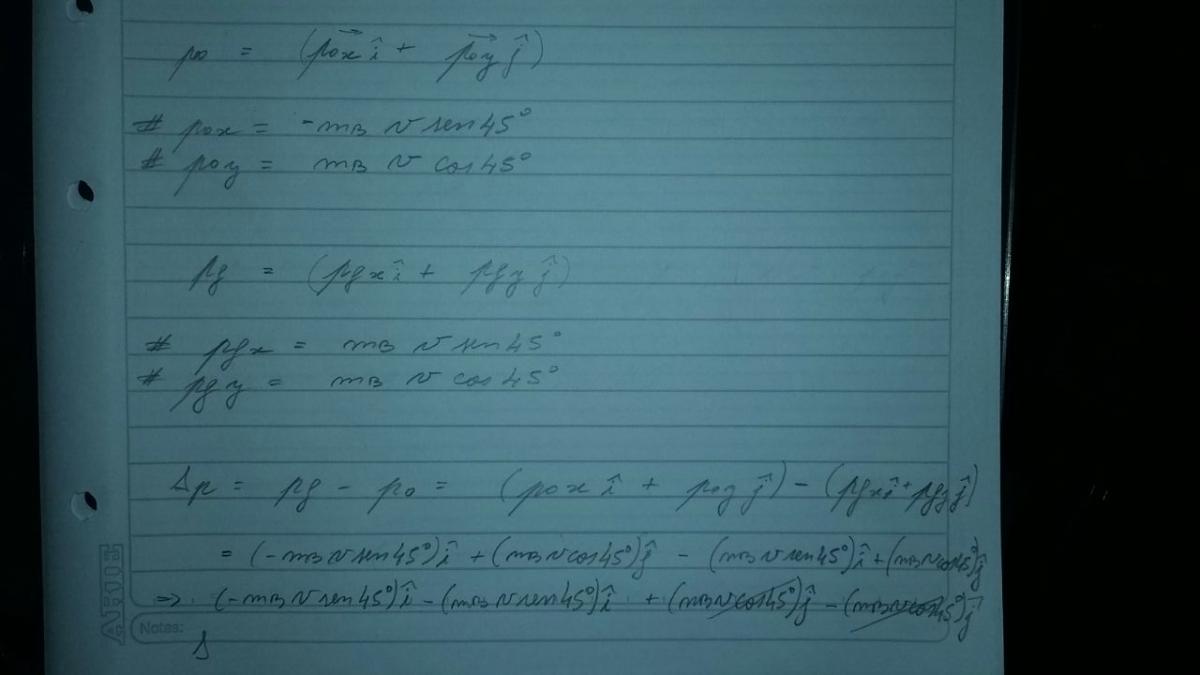 po = (pox î + poy ĵ)
# pox = -mB v sen45°
# poy = mB v cos45°
pf = (pfx î + pfy ĵ)
# pfx = mB v sen45°
# pfy = mB v cos45°
Δp = pf - po = (pox î + poy ĵ) - (pfx î + pfy ĵ)
= (-mB v sen45°) î + (mB v cos45°) ĵ - (mB v sen45°) î + (mB v cos45°) ĵ
=> (-mB v sen45°) î - (mB v sen45°) î + (mB v cos45°) ĵ - (mB v cos45°) ĵ
Notes:
Δ